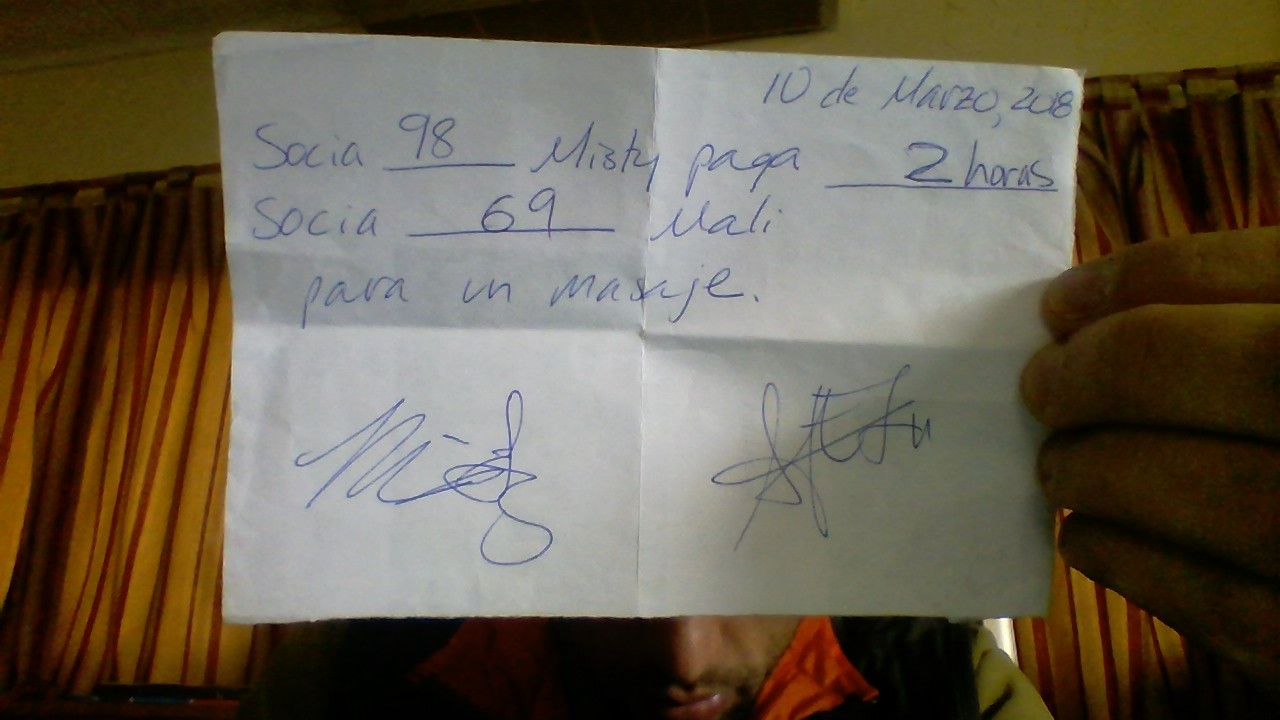 10 de Marzo, 2018
Socia 98 Misty paga 2 horas
Socia 69 Mali
para un masaje.